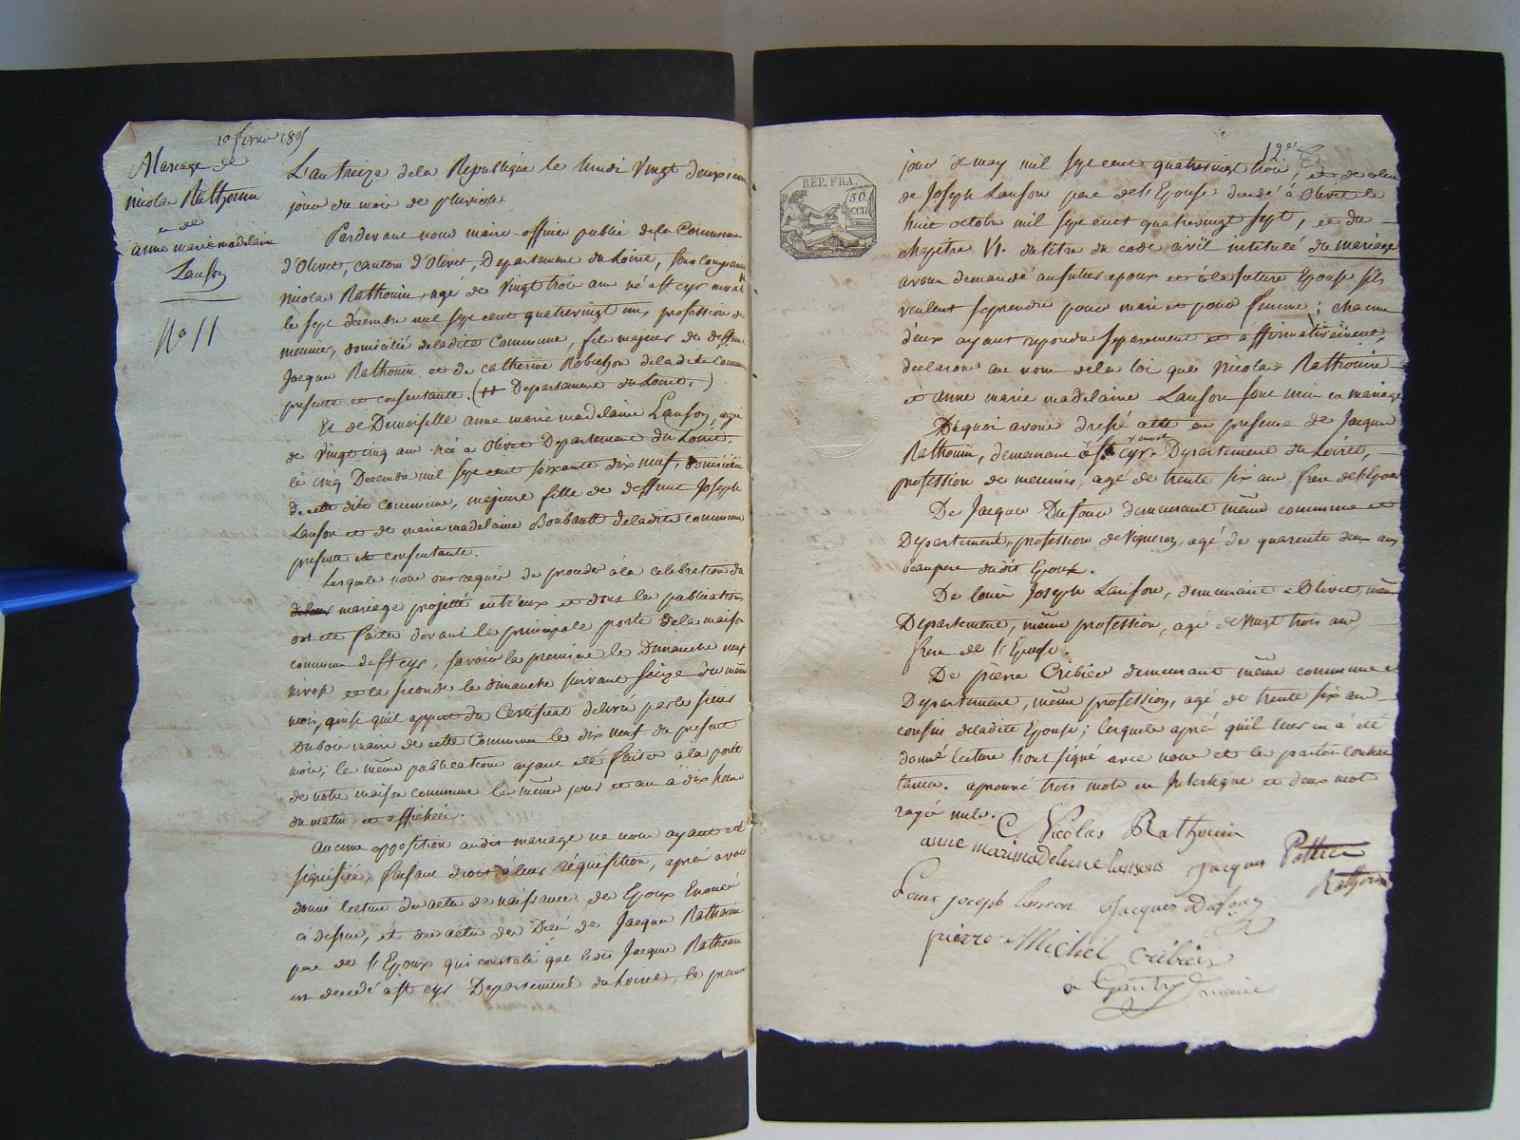 10 fevrier 1805
Mariage de
nicolas Rathouin
et de
anne marie madelaine
Lanson
No 11
L'an treize de la Republique le lundi Vingt deuxieme
jour du mois de pluviose
Pardevant nous maire officier public de la Commune
d'Olivet, canton d'Olivet, Departement du Loiret, sont comparus
Nicolas Rathouin, agé de Vingt trois ans né a St cyr en val
le sept décembre mil sept cent quatrevingt un, profession de
meunier, domicilié de ladite Commune, fils majeur de deffunt
Jacques Rathouin et de catherine Robichon de ladite Commune
presente et consentante. (++ Departement du Loiret.)
Et de Demoiselle anne marie madelaine Lanson, agée
de vingt cinq ans née a Olivet Departement du Loiret,
le cinq Decembre mil sept cent soixante dix neuf, domiciliée
de cette dite commune, majeure fille de deffunt Joseph
Lanson et de marie madelaine Boubault de ladite commune
presente et consentante.
Lesquels nous ont requis de proceder a la celebration du
mariage projetté entr'eux et dont les publications
ont été faites devant la principale porte de la maison
commune de St cyr, savoir la premiere le dimanche neuf
nivose et la seconde le dimanche suivant seize du même
mois, ainsi qu'il appert du Certificat délivré par le sieur
Dubois maire de cette Commune le dix neuf du present
mois; les mêmes publications ayant été faites a la porte
de notre maison commune les mêmes jours et an a dix heures
du matin et affichées.
Aucune opposition audit mariage ne nous ayant été
signifiée, faisant droit à leur réquisition, après avoir
donné lecture des actes de naissance des Epoux Enoncés
ci dessus, et des actes de Décés de Jacques Rathouin
pere de l'Epoux qui constate que ledit Jacques Rathouin
est decedé a St cyr Departement du Loiret, le premier
REP. FRA.
50
jour de may mil sept cent quatrevingt trois, et de celui
de Joseph Lanson pere de l'Epouse decedé à Olivet le
huit octobre mil sept cent quatrevingt sept, et du
chapitre VI du titre du code civil intitulé du mariage
avons demandé au futur epoux et à la future Epouse s'ils
veulent se prendre pour mari et pour femme; chacun
d'eux ayant repondu separement et affirmativement,
declarons au nom de la loi que Nicolas Rathouin
et anne marie madelaine Lanson sont unis en mariage
De quoi avons dressé acte en presence de Jacques
Rathouin, demeurant à St cyr Departement du Loiret,
profession de meunier, agé de trente six ans frere de l'Epoux
De Jacques Dufour demeurant même commune et
Departement, profession de Vigneron, agé de quarente deux ans
beaupere dudit Epoux.
De louis Joseph Lanson, demeurant a Olivet même
Departement, même profession, agé de vingt trois ans
frere de l'Epouse.
De pierre Cribier demeurant même commune et
Departement, même profession, agé de trente six ans
cousin de ladite Epouse; lesquels après qu'il leur en a été
donné lecture l'ont signé avec nous et les parties contrac
tantes. aprouvé trois mots en Interligne et deux mots
rayés nuls.
C. Nicolas Rathouin
anne mari madeleine lanson Jacques
Rathouin
Louis joseph lanson Jacques Dufour
pierre Michel cribier
maire